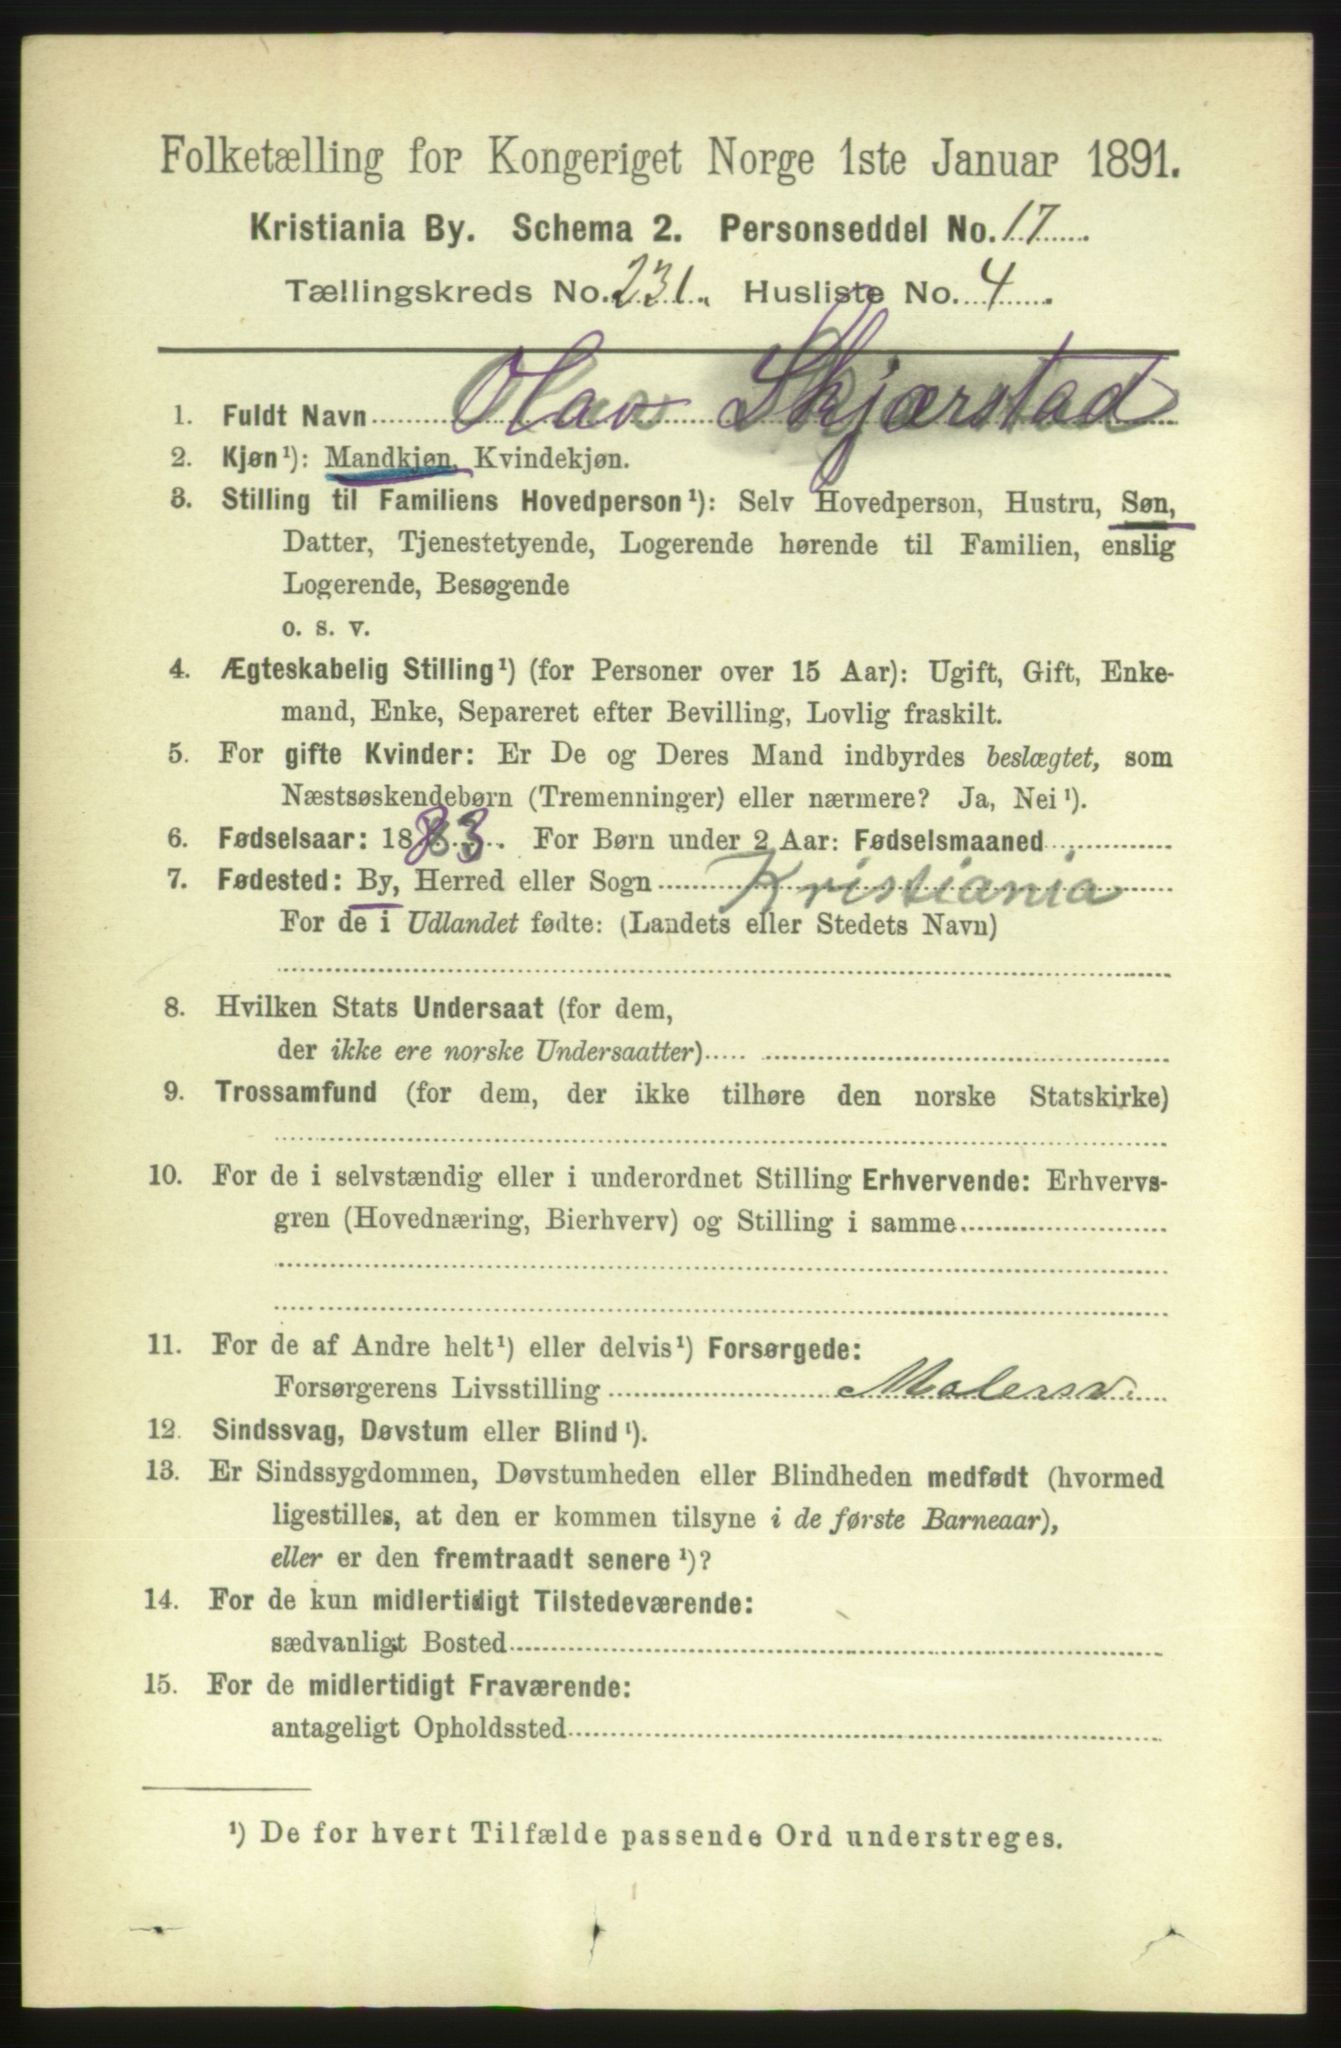 Folketælling for Kongeriget Norge 1ste Januar 1891.
Kristiania By. Schema 2. Personseddel No. 17
Tællingskreds No. 231. Husliste No. 4
1. Fuldt Navn Olav Skjærstad
2. Kjøn¹): Mandkjøn, Kvindekjøn.
3. Stilling til Familiens Hovedperson¹): Selv Hovedperson, Hustru, Søn,
Datter, Tjenestetyende, Logerende hørende til Familien, enslig
Logerende, Besøgende
o. s. v.
4. Ægteskabelig Stilling¹) (for Personer over 15 Aar): Ugift, Gift, Enke-
mand, Enke, Separeret efter Bevilling, Lovlig fraskilt.
5. For gifte Kvinder: Er De og Deres Mand indbyrdes beslægtet, som
Næstsøskendebørn (Tremenninger) eller nærmere? Ja, Nei¹).
6. Fødselsaar: 1883. For Børn under 2 Aar: Fødselsmaaned
7. Fødested: By, Herred eller Sogn Kristiania
For de i Udlandet fødte: (Landets eller Stedets Navn)
8. Hvilken Stats Undersaat (for dem,
der ikke ere norske Undersaatter)
9. Trossamfund (for dem, der ikke tilhøre den norske Statskirke)
10. For de i selvstændig eller i underordnet Stilling Erhvervende: Erhvervs-
gren (Hovednæring, Bierhverv) og Stilling i samme
11. For de af Andre helt¹) eller delvis¹) Forsørgede:
Forsørgerens Livsstilling Malersv.
12. Sindssvag, Døvstum eller Blind¹).
13. Er Sindssygdommen, Døvstumheden eller Blindheden medfødt (hvormed
ligestilles, at den er kommen tilsyne i de første Barneaar),
eller er den fremtraadt senere¹)?
14. For de kun midlertidigt Tilstedeværende:
sædvanligt Bosted
15. For de midlertidigt Fraværende:
antageligt Opholdssted
¹) De for hvert Tilfælde passende Ord understreges.